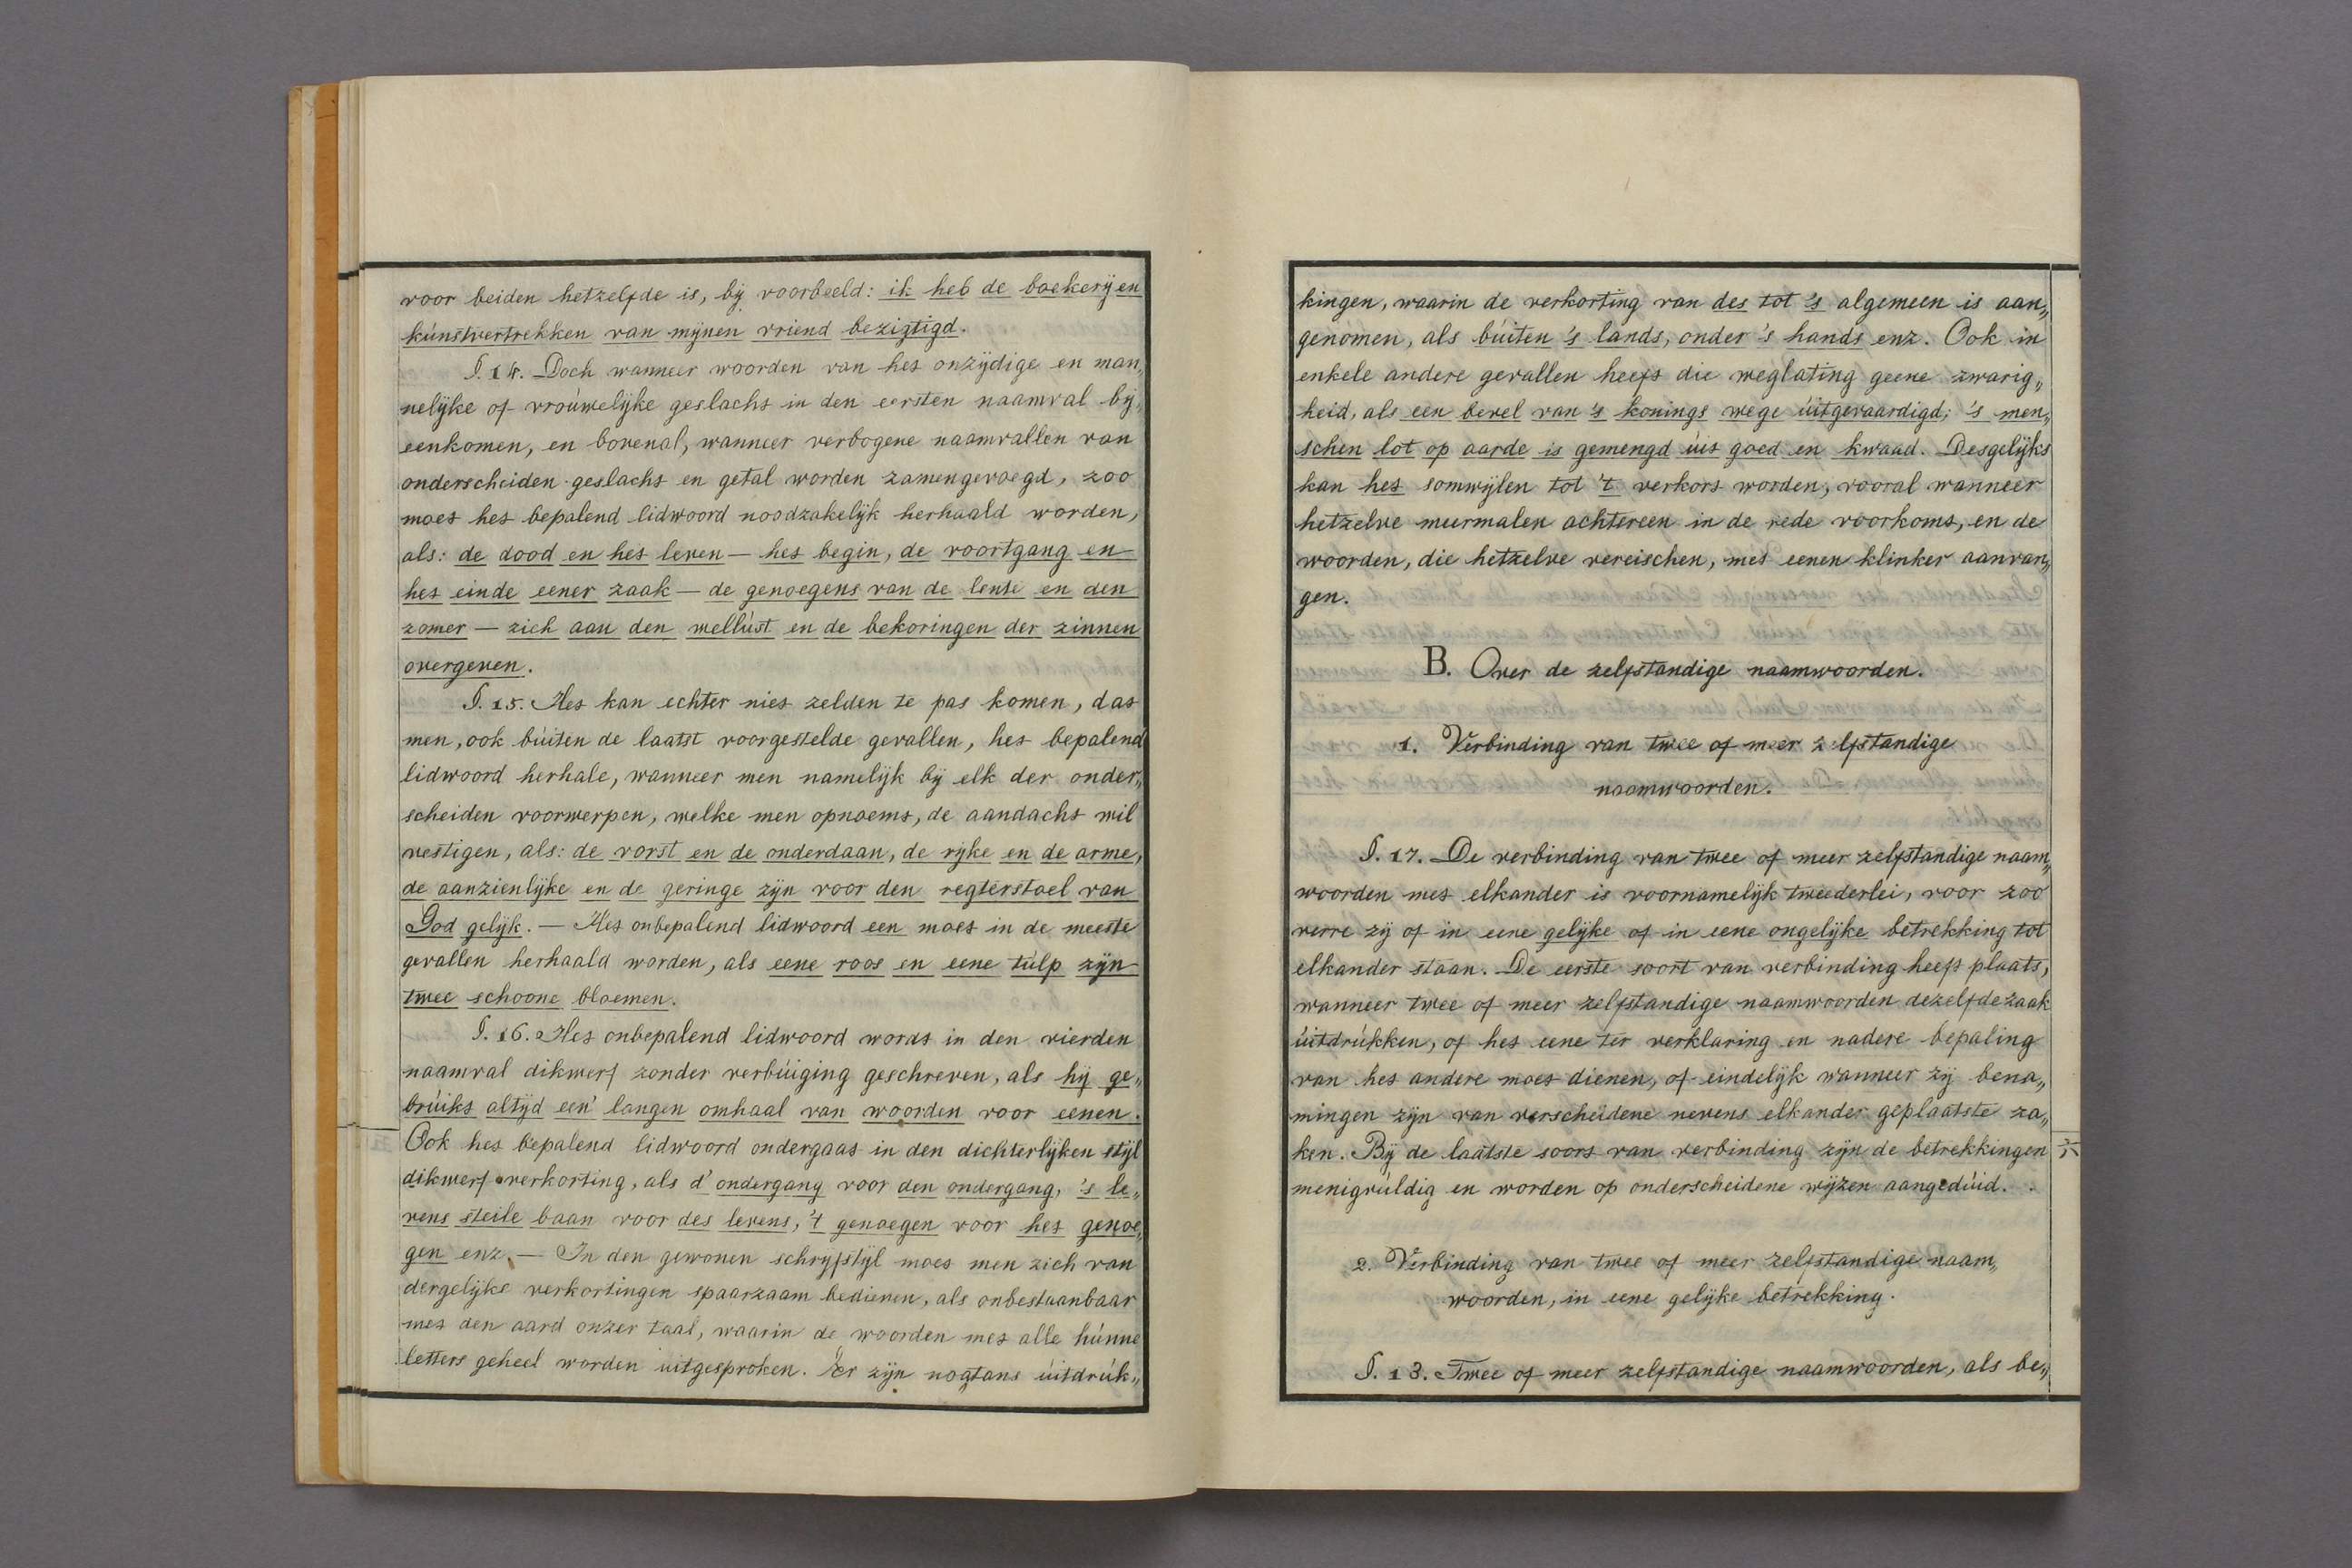 voor beiden hetzelfde is, bij voorbeeld: ik heb de boekerij en
kúnstvertrekken van mijnen vriend bezigtigd.
§. 14. Doch wanneer woorden van het onzijdige en man„
nelijke of vroúwelijke geslacht in den eersten naamval bij„
eenkomen, en bovenal, wanneer verbogene naamvallen van
onderscheiden geslacht en getal worden zamengevoegd, zoo
moet het bepalend lidwoord noodzakelijk herhaald worden,
als: de dood en het leven — het begin, de voortgang en
het einde eener zaak — de genoegens van de lente en den
zomer — zich aan den wellúst en de bekoringen der zinnen
overgeven.
§. 15. Het kan echter niet zelden te pas komen, dat
men, ook búiten de laatst voorgestelde gevallen, het bepalend
lidwoord herhale, wanneer men namelijk bij elk der onder„
scheiden voorwerpen, welke men opnoemt, de aandacht wil
vestigen, als: de vorst en de onderdaan, de rijke en de arme,
de aanzienlijke en de geringe zijn voor den regterstoel van
God gelijk. — Het onbepalend lidwoord een moet in de meeste
gevallen herhaald worden, als eene roos en eene túlp zijn
twee schoone bloemen.
§. 16. Het onbepalend lidwoord wordt in den vierden
naamval dikwerf zonder verbúiging geschreven, als hij ge„
brúikt altijd een' langen omhaal van woorden voor eenen.
Ook het bepalend lidwoord ondergaat in den dichterlijken stijl
dikwerf verkorting, als d' ondergang voor den ondergang, 's le„
vens steile baan voor des levens, 't genoegen voor het genoe„
gen enz. — In den gewonen schrijfstijl moet men zich van
dergelijke verkortingen spaarzaam bedienen, als onbestaanbaar
met den aard onzer taal, waarin de woorden met alle húnne
letters geheel worden úitgesproken. Er zijn nogtans úitdrúk„
kingen, waarin de verkorting van des tot 's algemeen is aan„
genomen, als búiten 's lands, onder 's hands enz. Ook in
enkele andere gevallen heeft die weglating geene zwarig„
heid, als een bevel van 's konings wege úitgevaardigd; 's men„
schen lot op aarde is gemengd úit goed en kwaad. Desgelijks
kan het somwijlen tot 't verkort worden, vooral wanneer
hetzelve meermalen achtereen in de rede voorkomt, en de
woorden, die hetzelve vereischen, met eenen klinker aanvan„
gen.
B. Over de zelfstandige naamwoorden.
1. Verbinding van twee of meer zelfstandige
naamwoorden.
§. 17. De verbinding van twee of meer zelfstandige naam„
woorden met elkander is voornamelijk tweederlei, voor zoo
verre zij of in eene gelijke of in eene ongelijke betrekking tot
elkander staan. De eerste soort van verbinding heeft plaats,
wanneer twee of meer zelfstandige naamwoorden dezelfde zaak
úitdrúkken, of het eene ter verklaring en nadere bepaling
van het andere moet dienen, of eindelijk wanneer zij bena„
mingen zijn van verscheidene nevens elkander geplaatste za„
ken. Bij de laatste soort van verbinding zijn de betrekkingen
menigvúldig en worden op onderscheidene wijzen aangedúid.
2. Verbinding van twee of meer zelfstandige naam„
woorden, in eene gelijke betrekking.
§. 18. Twee of meer zelfstandige naamwoorden, als be„